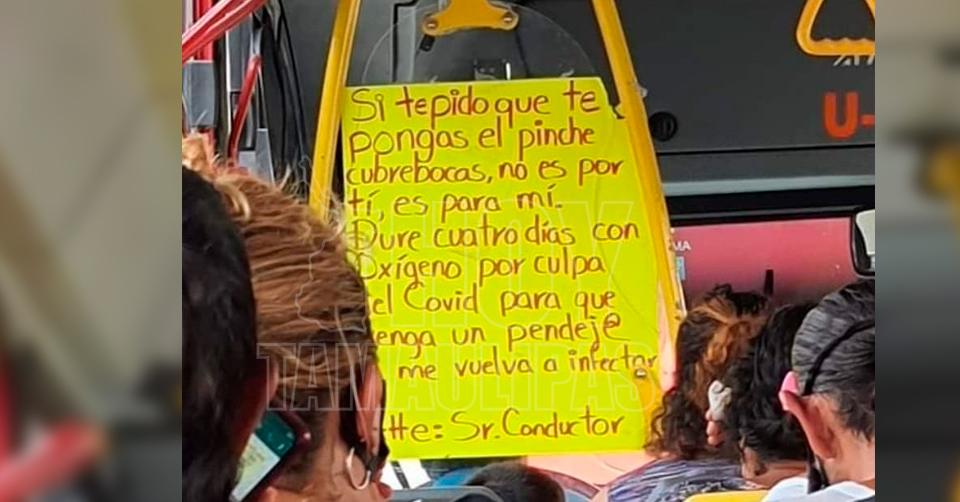 Si te pido que te
pongas el pinche
cubrebocas, no es por
tí, es para mí.
Dure cuatro días con
Oxígeno por culpa
el Covid para que
enga un pendej@
me vuelva a infectar
tte: Sr. Conductor
U-
MA
HOY
TAMAULIPAS